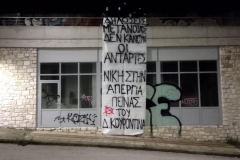 ΔΗΛΩΣΕΙΣ
ΜΕΤΑΝΟΙΑΣ
ΔΕΝ ΚΑΝΟΥΝ
ΟΙ
ΑΝΤΑΡΤΕΣ
ΝΙΚΗ ΣΤΗΝ
ΑΠΕΡΓΙΑ
ΠΕΙΝΑΣ
ΤΟΥ
Δ. ΚΟΥΦΟΝΤΙΝΑ